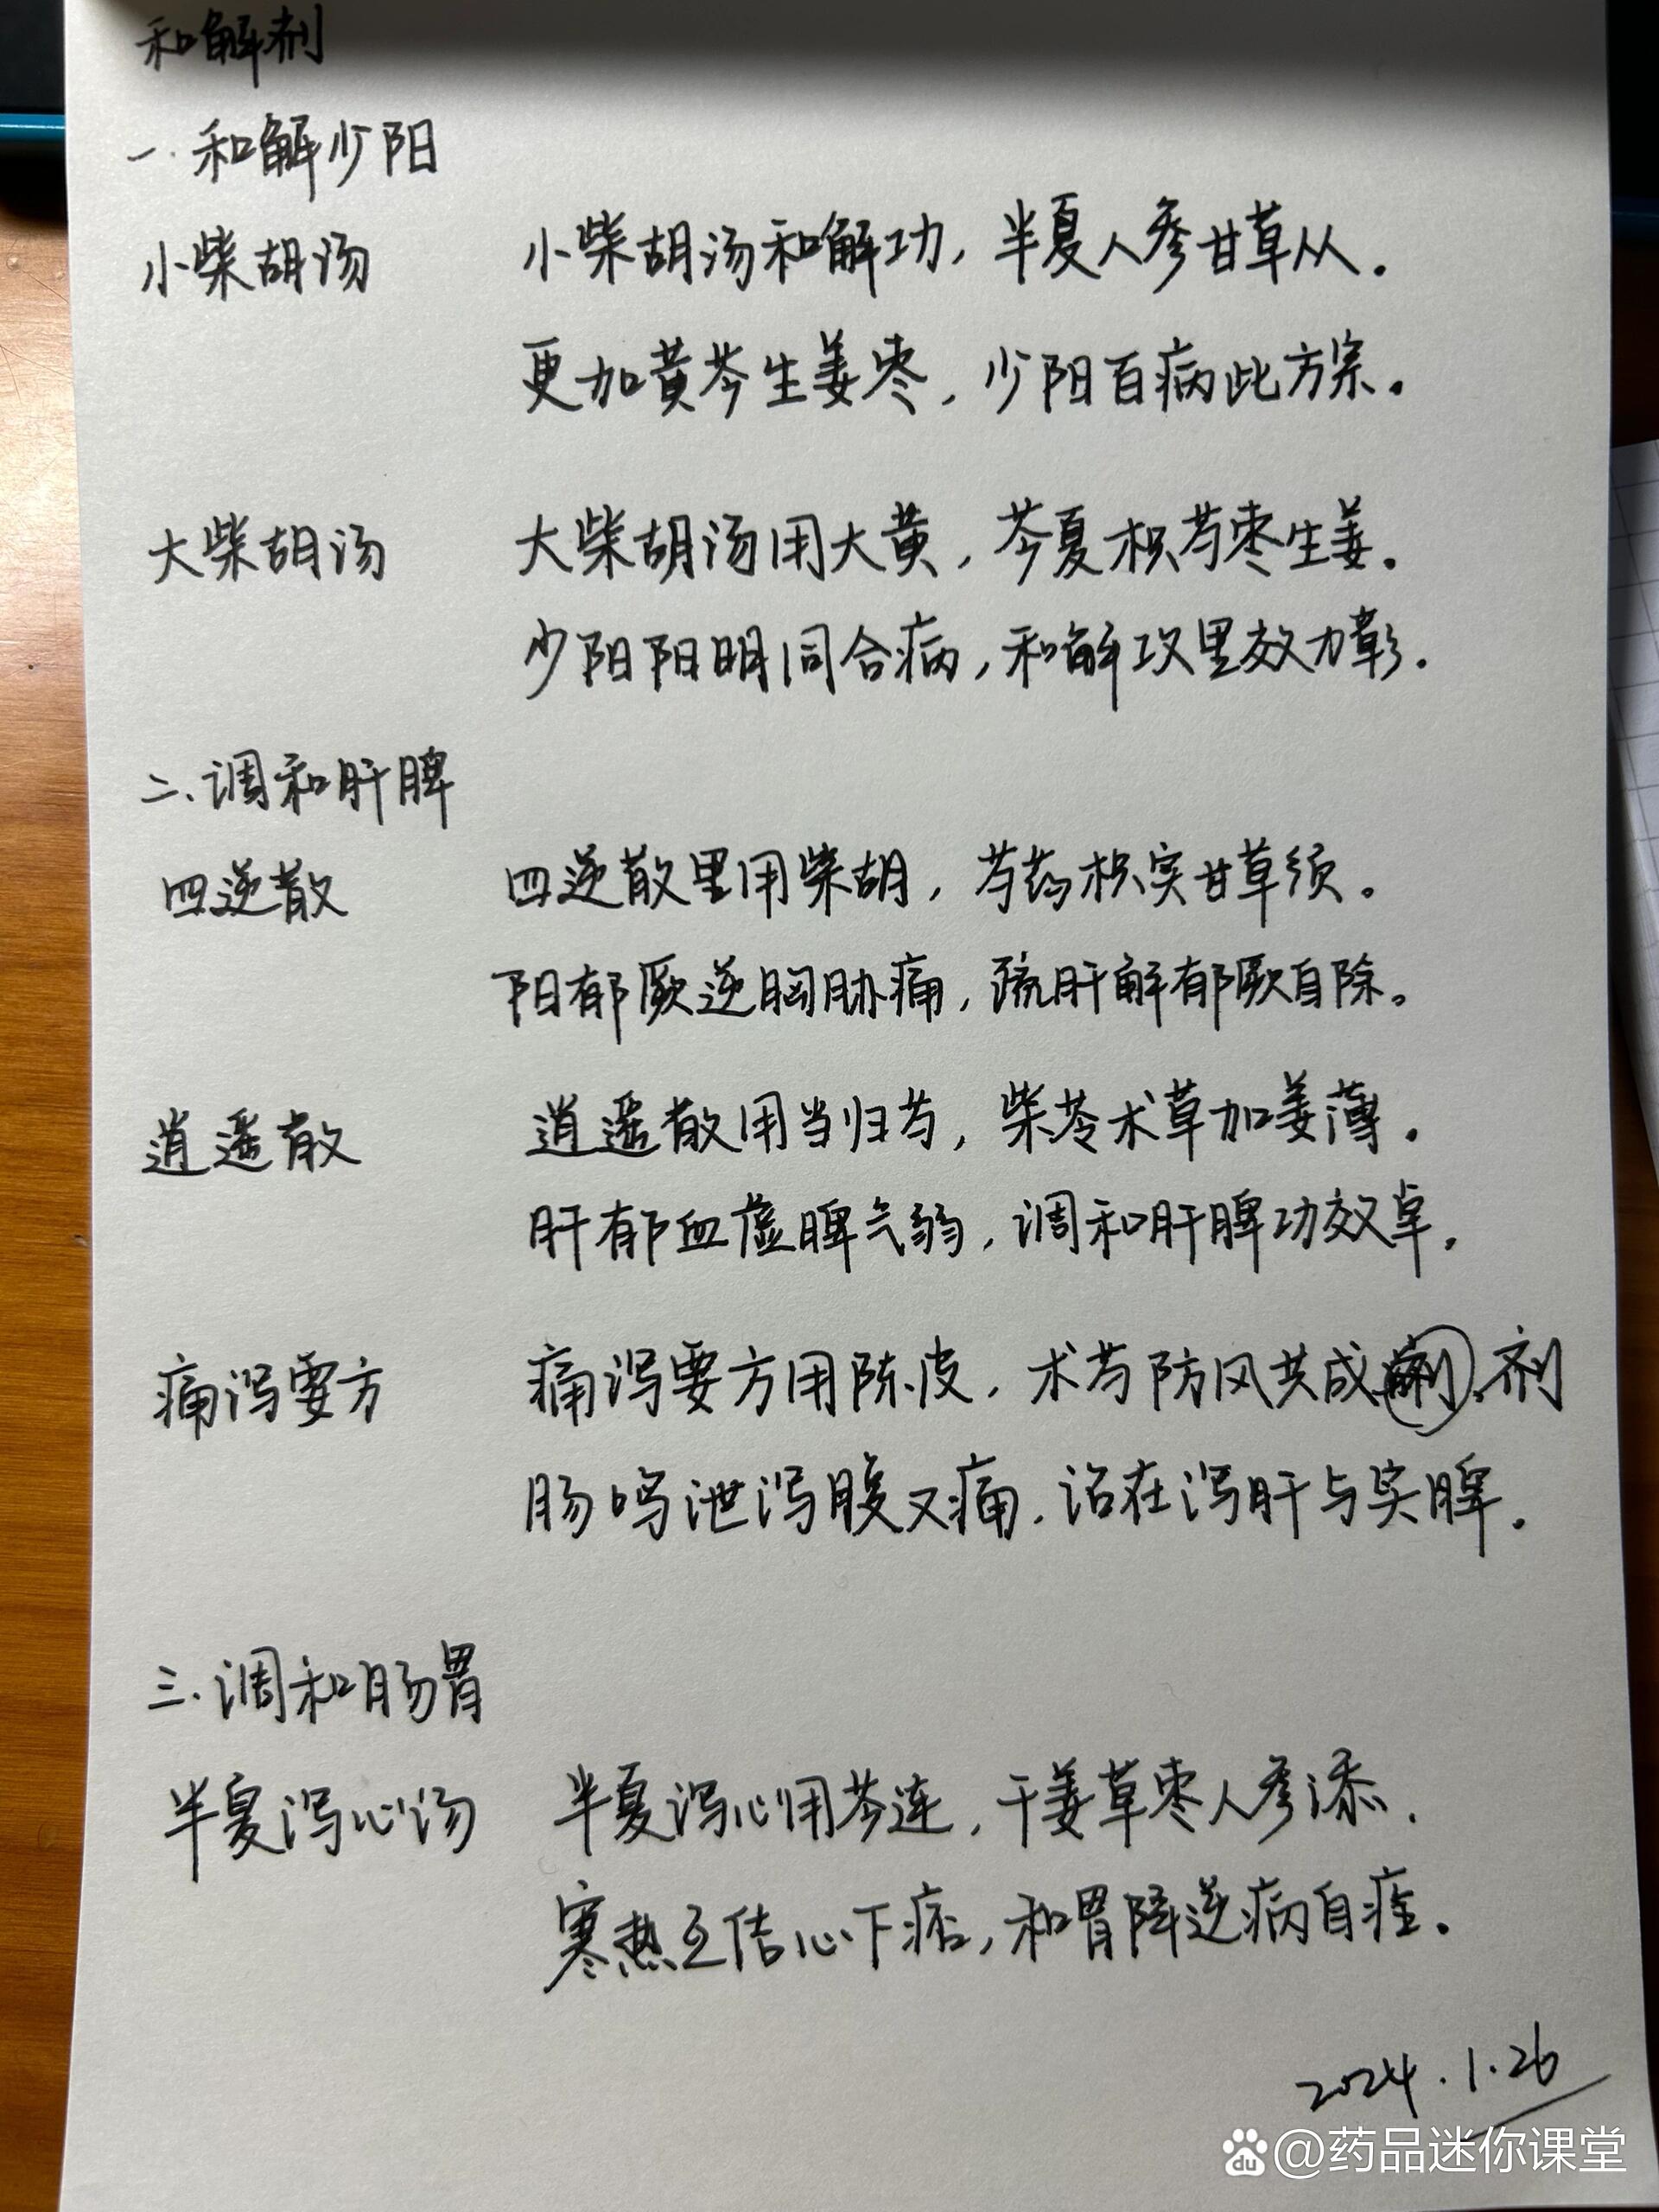 和解剂
一.和解少阳
小柴胡汤 小柴胡汤和解功,半夏人参甘草从.
更加黄芩生姜枣,少阳百病此方宗。
大柴胡汤 大柴胡汤用大黄,芩夏枳芍枣生姜.
少阳阳明同合病,和解攻里效力彰.
二、调和肝脾
四逆散 四逆散里用柴胡,芍药枳实甘草须。
阳郁厥逆胸胁痛,疏肝解郁厥自除。
逍遥散 逍遥散用当归芍,柴苓术草加姜薄.
肝郁血虚脾气弱,调和肝脾功效卓.
痛泻要方 痛泻要方用陈皮,术芍防风共成剂
肠鸣泄泻腹又痛.治在泻肝与实脾.
三.调和肠胃
半夏泻心汤 半夏泻心用芩连,干姜草枣人参添.
寒热互结心下痞,和胃降逆病自痊。
2024.1.26
du @药品迷你课堂